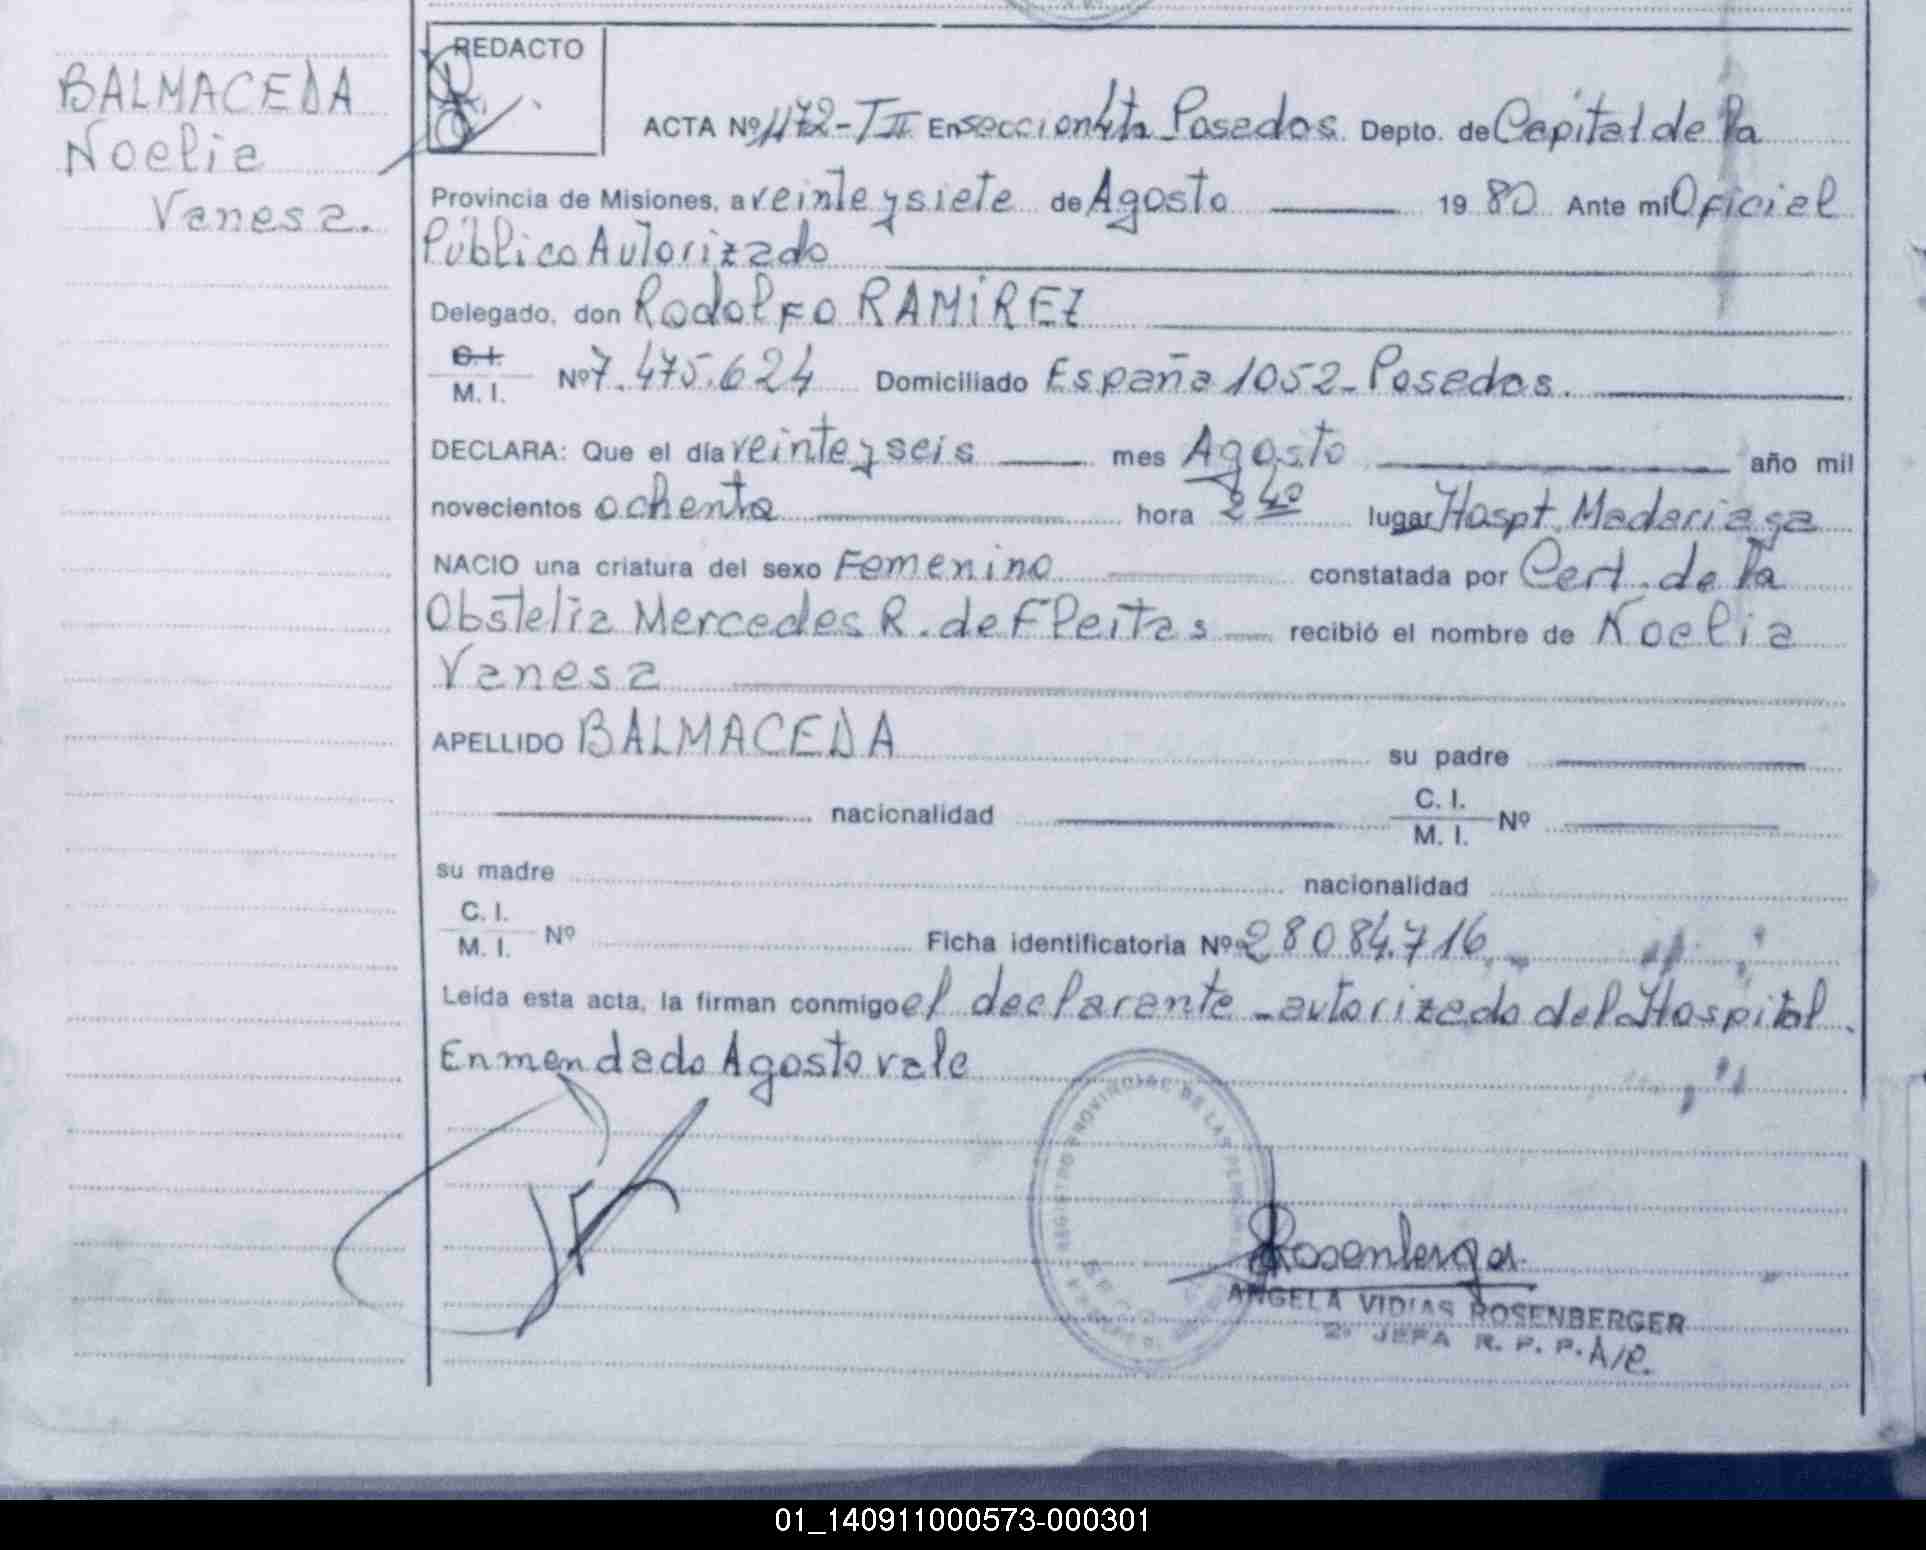 BALMACEDA
Noelia
Vanesa.
REDACTO
ACTA Nº 1172-TII En sección 4ta Posadas. Depto. de Capital de la
Provincia de Misiones, a veinte y siete de Agosto 19 80 Ante mi Oficial
Público Autorizado
Delegado, don Rodolfo RAMIREZ
C. I.
M. I. Nº 7.475.624 Domiciliado España 1052-Posadas.
DECLARA: Que el día veinte y seis mes Agosto año mil
novecientos ochenta hora 2 40 lugar Hospt. Madariaga
NACIO una criatura del sexo Femenino constatada por Cert. de la
Obstetiz Mercedes R. de Fleitas recibió el nombre de Noelia
Vanesa
APELLIDO BALMACEDA su padre
nacionalidad C. I.
M. I. Nº
su madre nacionalidad
C. I.
M. I. Nº Ficha identificatoria Nº 28084.716
Leída esta acta, la firman conmigo el declarante autorizado del Hospital.
Enmendado Agosto vale
REGISTRO PROVINCIAL DE LAS
Rosenberger
ANGELA VIDIAS ROSENBERGER
2º JEFA R. P. P. A/C.
01_140911000573-000301